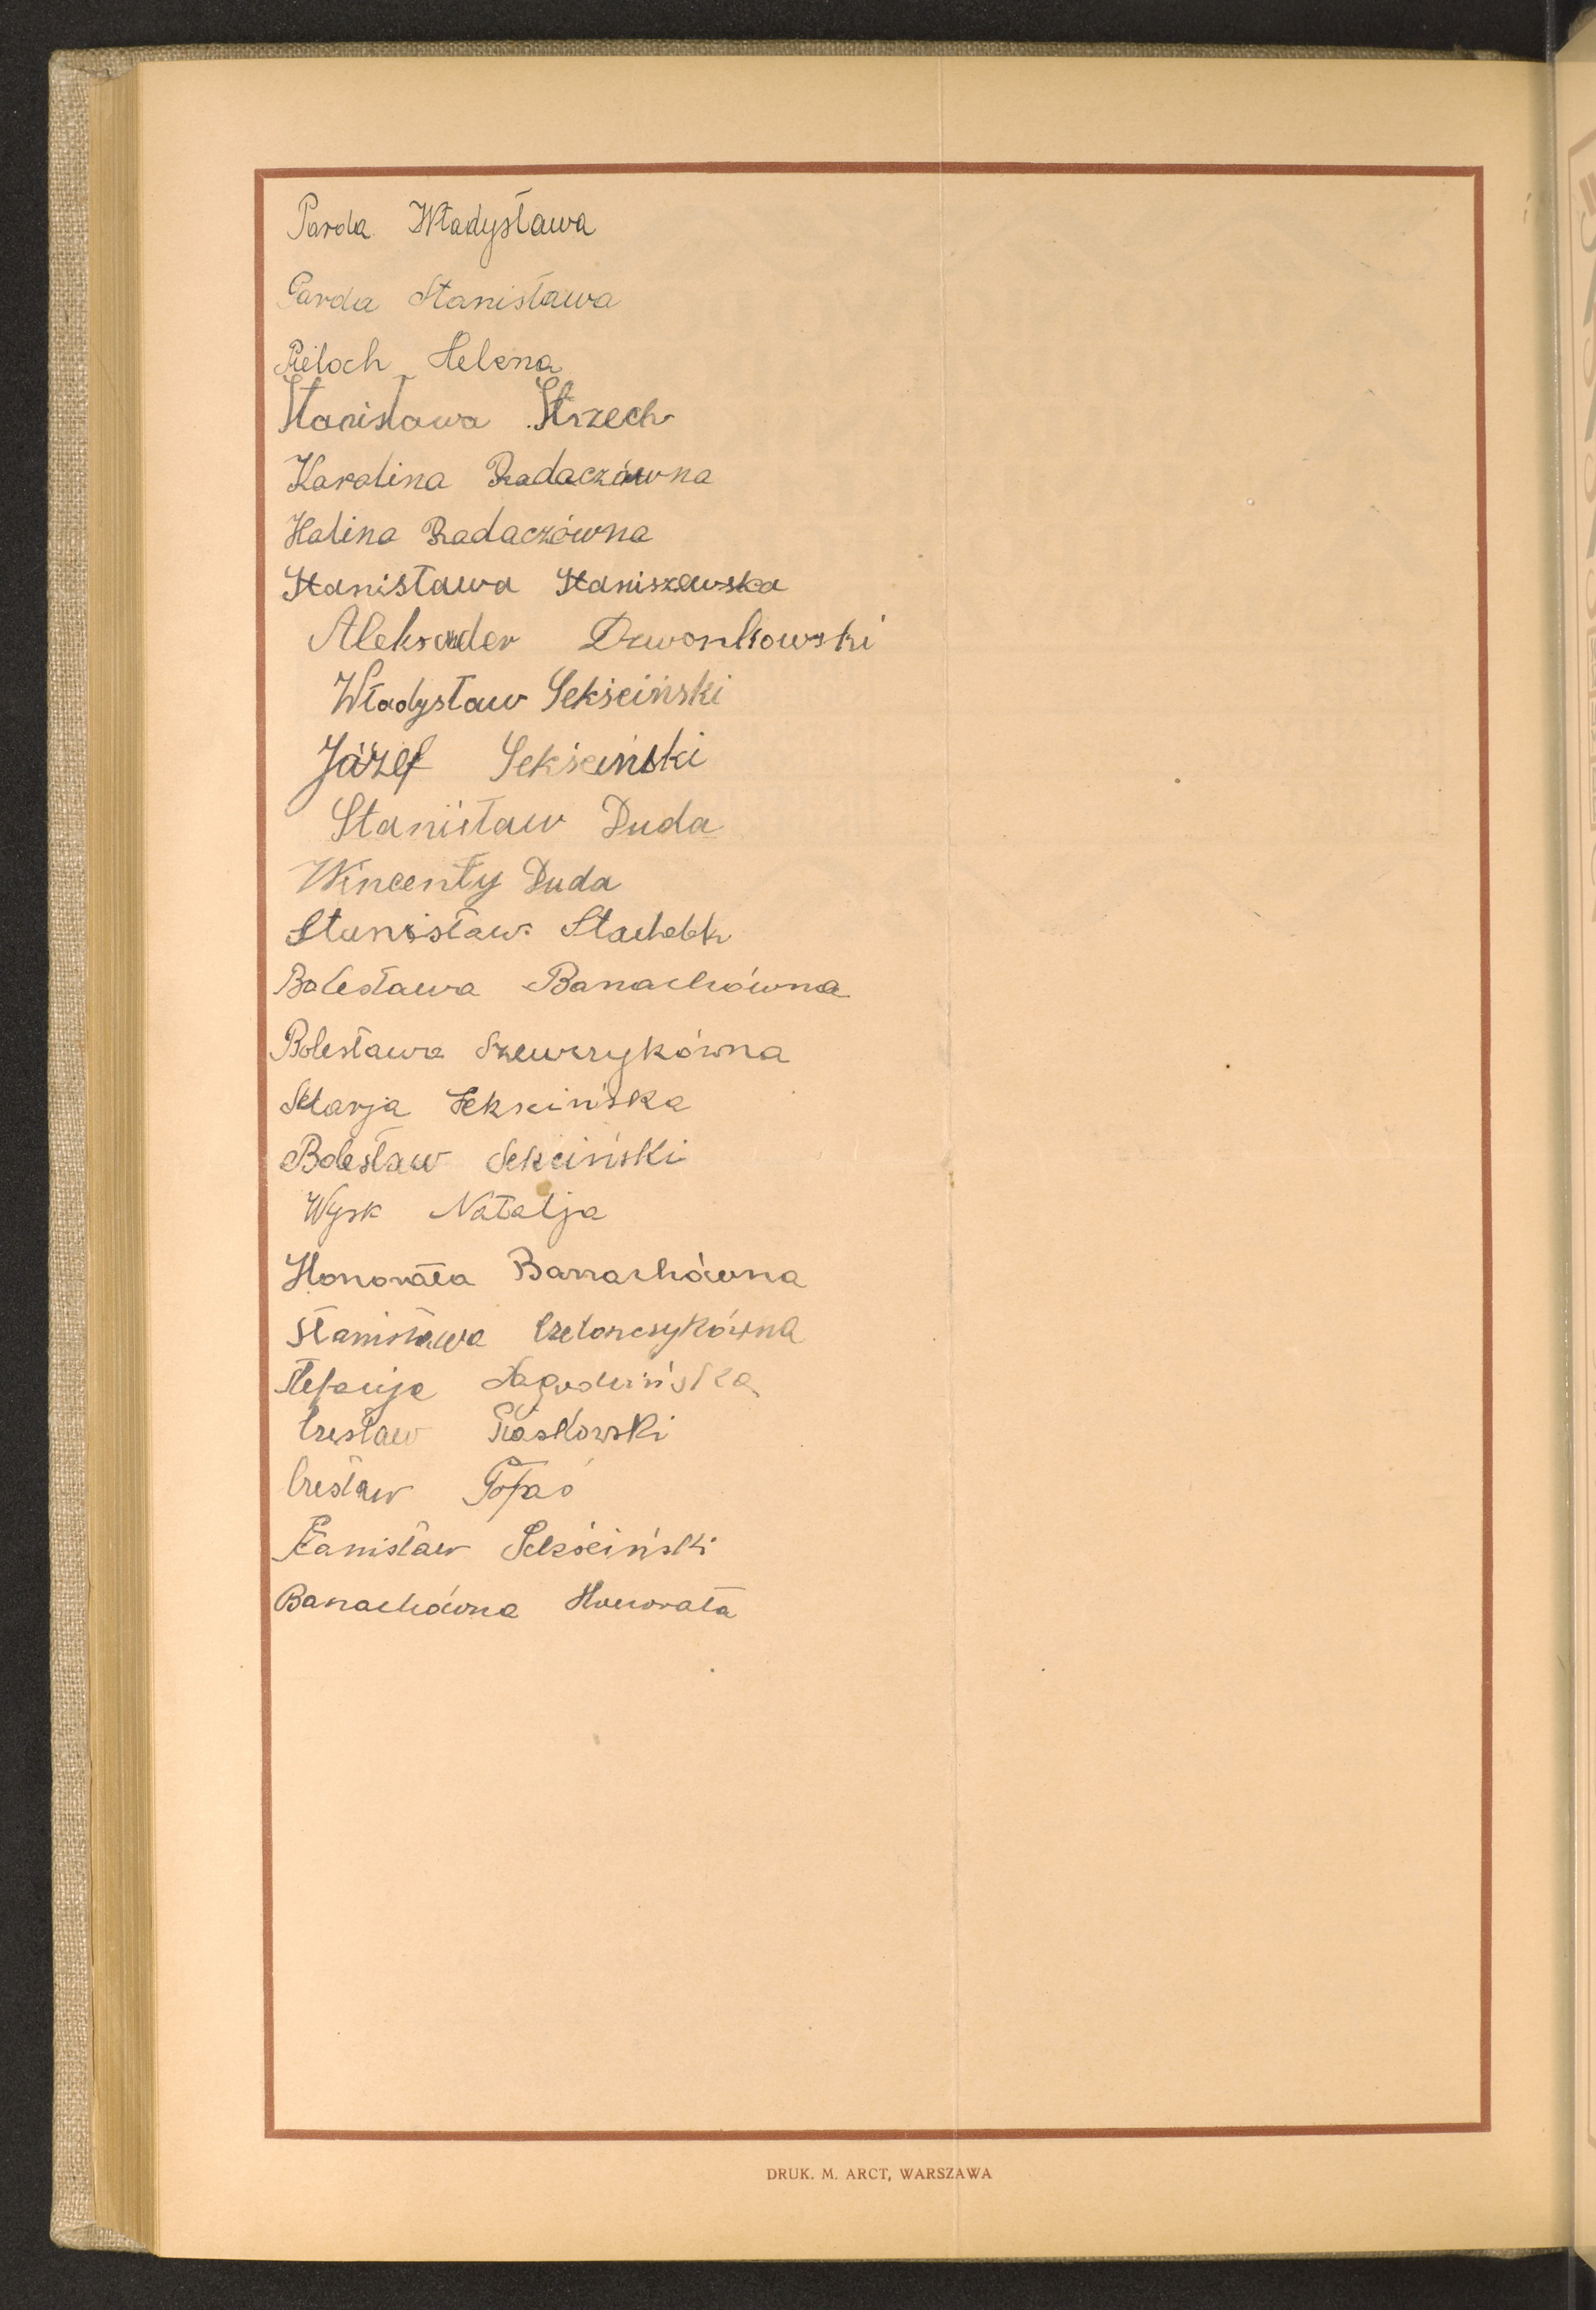 Parda Władysława
Parda Stanisława
Pieloch Helena
Stanisława Strzech
Karolina Radaczówna
Halina Radaczówna
Stanisława Staniszewska
Aleksader Dzwonkowski
Władysław Sekściński
Józef Sekściński
Stanisław Duda
Wincenty Duda
Stanisław
Bolesława Banachówna
Bolesława Szewczykówna
Marja Sekścińska
Bolesław Sekciński
Wysk Natalja
Honorata Banachówna
Stanisława
Stefanja Jagodzińska
Czesław Piaskowski
Czesław
Stanisław Sekściński
Banachówna Honorata
DRUK. M. ARCT, WARSZAWA